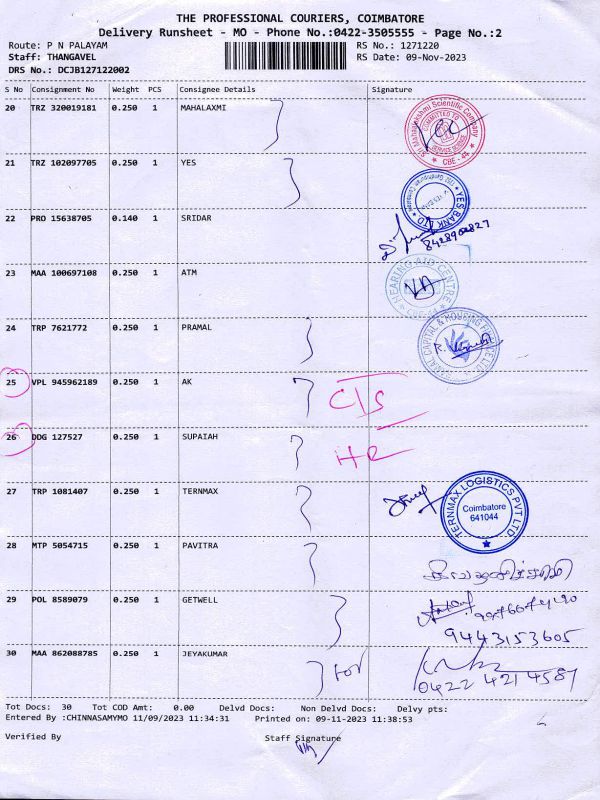 THE PROFESSIONAL COURIERS, COIMBATORE
Delivery Runsheet - MO - Phone No.:0422-3505555 - Page No.:2
Route: P N PALAYAM
RS No.: 1271220
Staff: THANGAVEL
RS Date: 09-Nov-2023
DRS No.: DCJB127122002
S No Consignment No Weight PCS Consignee Details Signature
20 TRZ 320019181 0.250 1 MAHALAXMI
Mahalakshmi Scientific Company
COMMITTED TO
CBE - 44
21 TRZ 102097705 0.250 1 YES
YES BANK LTD
22 PRO 15638705 0.140 1 SRIDAR
23 MAA 100697108 0.250 1 ATM
HEARING AID CENTRE
24 TRP 7621772 0.250 1 PRAMAL
CAPITAL & HOUSING FINANCE LTD
25 VPL 945962189 0.250 1 AK CTS
26 DDG 127527 0.250 1 SUPAIAH
27 TRP 1081407 0.250 1 TERNMAX
TERNMAX LOGISTICS PVT LTD
Coimbatore
641044
28 MTP 5054715 0.250 1 PAVITRA
29 POL 8589079 0.250 1 GETWELL
9443153605
30 MAA 862088785 0.250 1 JEYAKUMAR for
0422 4214587
Tot Docs: 30 Tot COD Amt: 0.00 Delvd Docs: Non Delvd Docs: Delvy pts:
Entered By :CHINNASAMYMO 11/09/2023 11:34:31 Printed on: 09-11-2023 11:38:53
Verified By Staff Signature